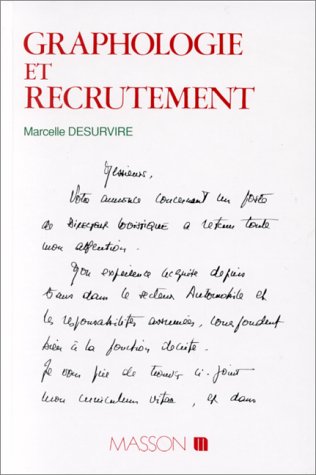 GRAPHOLOGIE
ET
RECRUTEMENT
Marcelle DESURVIRE
Messieurs,
Votre annonce concernant un poste
de DIRECTEUR LOGISTIQUE a retenu toute
mon attention.
Mon expérience acquise depuis
5 ans dans le secteur Automobile et
les responsabilités assumées, correspondent
bien à la fonction décrite.
Je vous prie de trouver ci-joint
mon curriculum vitae, et dans
MASSON m